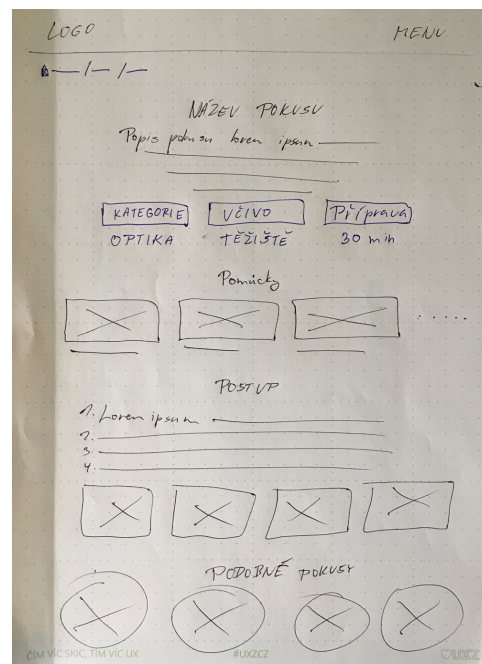 LOGO MENU
NÁZEV POKUSU
Popis pokusu loren ipsum
KATEGORIE UČIVO Příprava
OPTIKA TĚŽIŠTĚ 30 min
Pomůcky
POSTUP
1. Loren ipsum
2.
3.
4.
PODOBNÉ POKUSY
ČÍM VÍC SKIC, TÍM VÍC UX #UXZCZ UXCZ